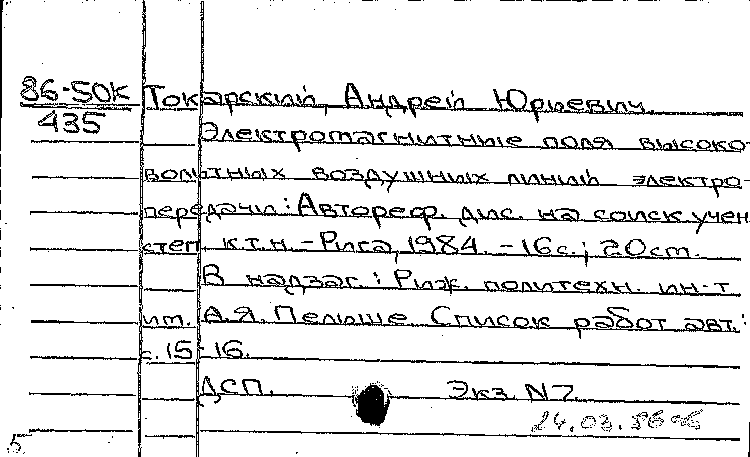 86-50К Токарский, Андрей Юрьевич.
435 Электромагнитные поля высоко-
вольтных воздушных линий электро-
передачи: Автореф. дис. на соиск. учен.
степ. к.т.н. - Рига, 1984. - 16 с.; 20 cm.
В надзаг.: Риж. политехн. ин-т
им. А.Я. Пельше. Список работ авт.:
с. 15-16.
ДСП. Экз. N7
24.03.86
5